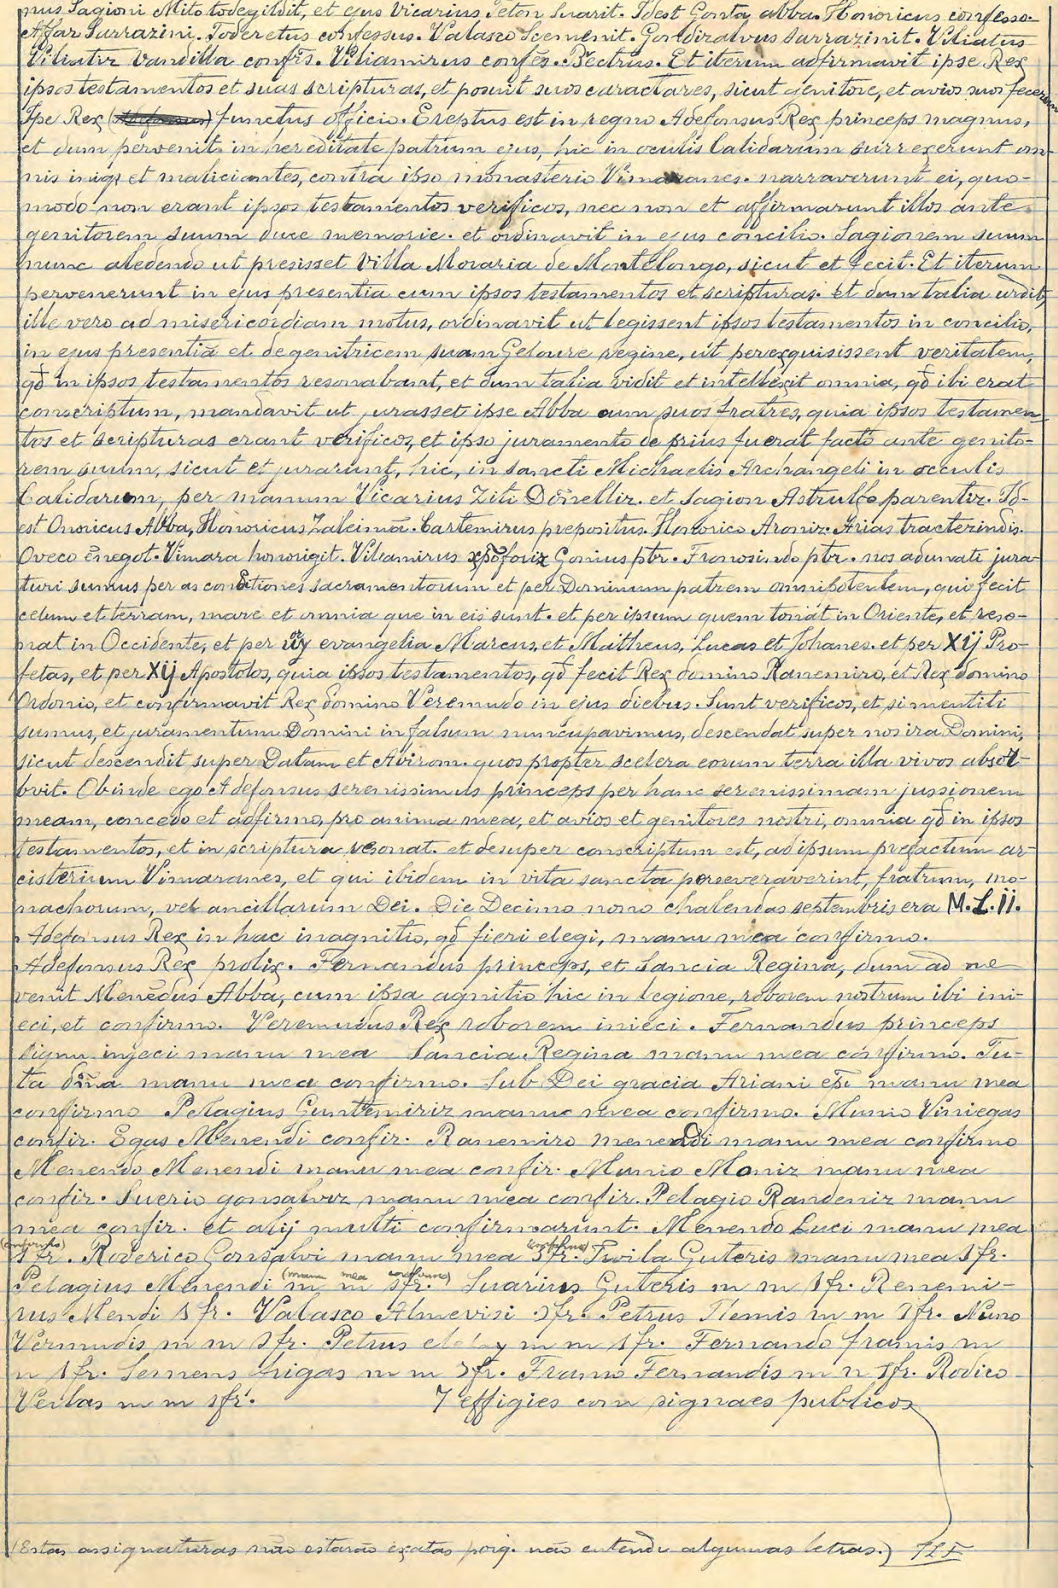 pus Sagioni Mito todegildit, et ejus Vicarius Teton Suarit. Idest Gonta abba. Honoricus confesso.
Affar Sarrazini. Toderetus confessus. Valasco Scemenit. Gondiralvus Sarrazinit. Viliatus
Viliativ Vandilla confes. Viliamirus confes. Pectrus. Et iterum adfirmavit ipse Rex
ipsos testamentos et suas scripturas, et posuit suos caractares, sicut genitore, et avios suos fecerunt
Ipe Rex functus officio. Ereptus est in regno Adefonsus Rex princeps magnus,
et dum pervenit in hereditate patrum ejus, hic in oculis Calidarum surrexerunt om-
nis iniqi et maliciantes, contra ipso monasterio Vimaranes. narraverunt ei, quo-
modo non erant ipsos testamentos verificos, nec non et affirmarunt illos ante
genitorem suum duce memorie. et ordinavit in ejus concilio. Sagionem suum
nunc aledendo ut presisset Villa Moraria de Montelongo, sicut et fecit. Et iterum
pervenerunt in ejus presentia cum ipsos testamentos et scripturas. et dum talia urdit,
ille vero ad misericordiam motus, ordinavit ut legissent ipsos testamentos in concilio,
in ejus presentia et de genitricem suam Geloure regine, ut perexquisissent veritatem,
qđ in ipsos testamentos resonabant, et dum talia vidit et intellexit omnia, qđ ibi erat
conscriptum, mandavit ut jurasset ipse Abba cum suos fratres, quia ipsos testamen-
tos et scripturas erant verificos, et ipso juramento de prius fuerat facto ante genito-
rem suum, sicut et jurarunt, hic, in sancti Michaelis Archangeli in occulis
Calidarum, per manum Vicarius Ziti Donelliz. et Sagion Astrulfo parentiz. Id-
est Onoricus Abba, Honoricus Zalcima. Cartemirus prepositus. Honorico Aroniz. Arias tracterindis.
Oveco ēnegot. Vimara honorigit. Viliamirus xp̄oforiz Gonius ptr. Fronosindo ptr. nos adunati jura-
turi sumus per as conditiones sacramentorum et per Dominum patrem omnipotentem, qui fecit
celum et terram, mare et omnia que in eis sunt. et per ipsum quem tonat in Oriente, et reso-
nat in Occidente, et per iiij evangelia Marcus, et Mattheus, Lucas et Johanes. et per XIJ Pro-
fetas, et per XIJ Apostolos, quia ipsos testamentos, qđ fecit Rex domino Ranemiro, et Rex domino
Ordonio, et confirmavit Rex domino Veremudo in ejus diebus. Sunt verificos, et si mentiti
sumus, et juramentum Domini in falsum nuncupavimus, descendat super nos ira Domini,
sicut descendit super Datam et Aviron. quos propter scelera eorum terra illa vivos absor-
bvit. Obinde ego Adefonsus serenissimus princeps per hanc serenissimam jussionem
meam, concedo et adfirmo, pro anima mea, et avios et genitores nostri, omnia qđ in ipsos
testamentos, et in scriptura resonat. et desuper conscriptum est, ad ipsum prefactum ar-
cisterium Vimaranes, et qui ibidem in vita sancta perseveraverint, fratrum, mo-
nachorum, vel ancillarum Dei. Die Decimo nono chalendas septembris era M.L.II.
Adefonsus Rex in hac inagnitio, qđ fieri elegi, manu mea confirmo.
Adefonsus Rex prolix. Fernandus princeps, et Sancia Regina, dum ad ne
venit Menēdus Abba, cum ipsa agnitio hic in legione, roborem nostrum ibi ini-
eci, et confirmo. Veremudus Rex roborem inieci. Fernandus princeps
signu injeci manu mea Sancia Regina manu mea confirmo. Tu-
ta dña manu mea confirmo. Sub Dei gracia Ariani epi manu mea
confirmo Pelagius Guntemiriz manu mea confirmo. Munio Viniegas
confir. Egas Menendi confir. Ranemiro menendi manu mea confirmo
Menendo Menendi manu mea confir. Munio Moniz manu mea
confir. Suerio gonsalviz manu mea confir. Pelagio Randeniz manu
mea confir. et alij multi confirmarunt. Menendo Luci manu mea
(confirmo) (confirmo)
sfr. Roderico Gonsalvi manu mea sfr. Froila Guteris manu mea sfr.
(manu mea confirmo)
Pelagius Menendi m m sfr. Suarius Guteris m m sfr. Renemi-
rus Mendi sfr. Valasco Almevisi sfr. Petrus Flemis m m sfr. Nuno
Vermudis m m sfr. Petrus m m sfr. Fernando framis m
m sfr. Semens m m sfr. Framo Fernandis m m sfr. Rodico
Veilas m m sfr. 7 effigies com signaes publicos
(Estas assignaturas não estarão exatas porq. não entendi algumas letras.)